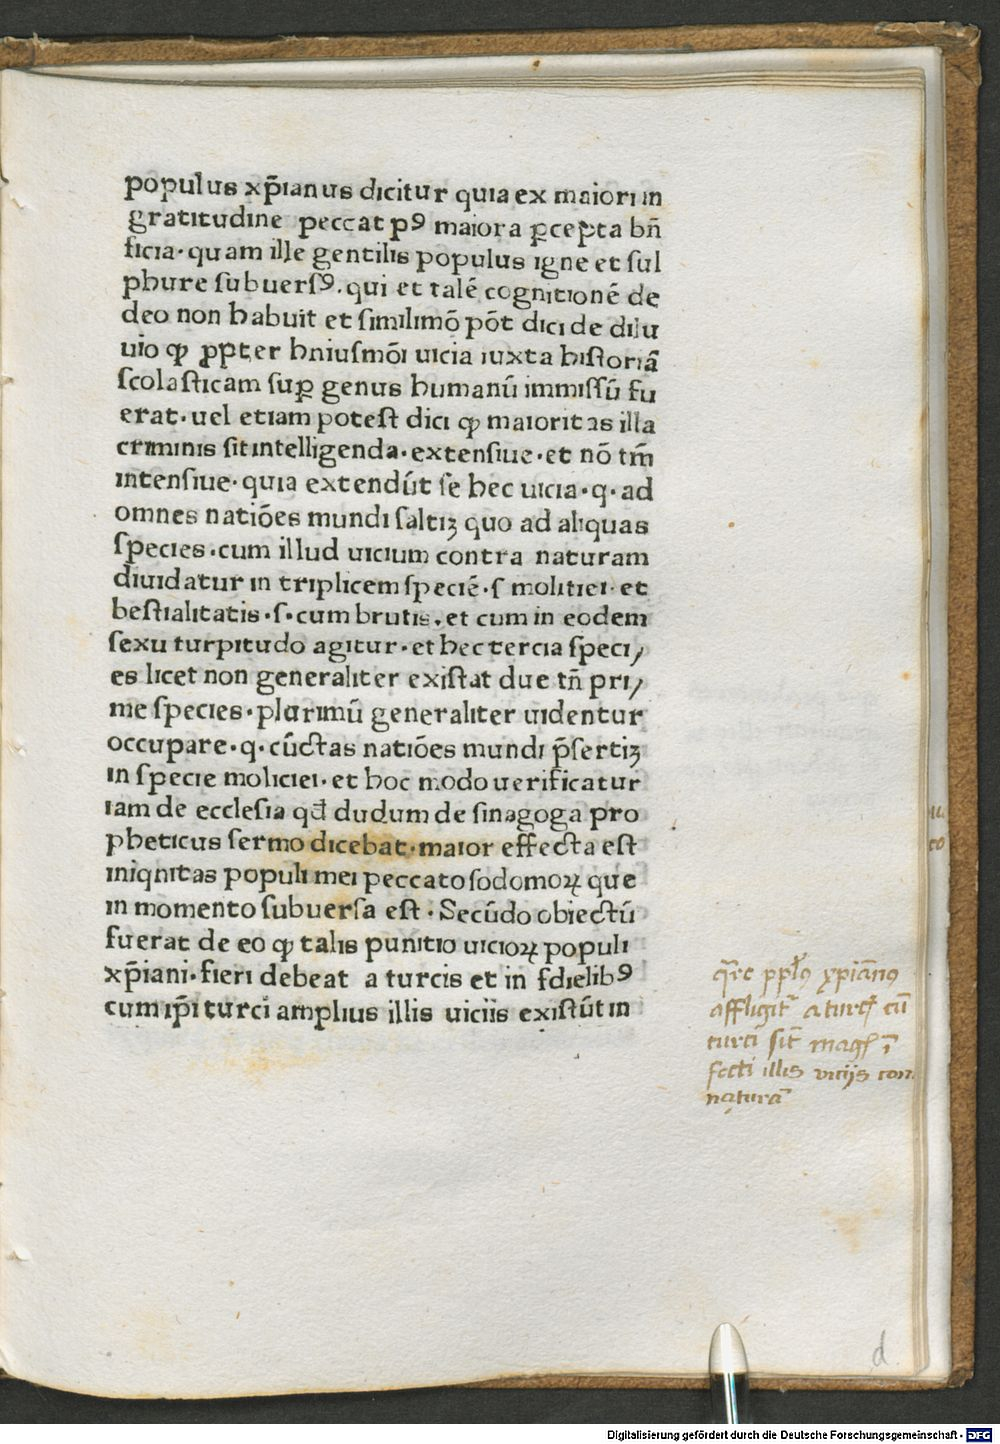 populus xp̄ianus dicitur quia ex maiori in
gratitudine peccat pꝰ maiora ꝑcepta bn̄
ficia· quam ille gentilis populus igne et sul
phure subuersꝰ. qui et talē cognitionē de
deo non habuit et similimō pōt dici de dilu
uio ꝙ ꝓpter hniusmōi uicia iuxta historiā
scolasticam suꝑ genus humanū immissū fu
erat· uel etiam potest dici ꝙ maioritas illa
criminis sit intelligenda· extensiue· et nō tm̄
intensiue· quia extendūt se hec uicia· q· ad
omnes natiōes mundi saltiꝫ quo ad aliquas
species· cum illud uicium contra naturam
diuidatur in triplicem speciē· s molitiei· et
bestialitatis· s· cum brutis. et cum in eodem
sexu turpitudo agitur· et hec tercia speci/
es licet non generaliter existat due tn̄ pri/
me species· plurimū generaliter uidentur
occupare· q· cūctas natiōes mundi p̄sertiꝫ
in specie moliciei· et hoc modo uerificatur
iam de ecclesia qd̄ dudum de sinagoga pro
pheticus sermo dicebat· maior effecta est
iniqnitas populi mei peccato sodomoꝝ que
in momento subuersa est· Secūdo obiectū
fuerat de eo ꝙ talis punitio uicioꝝ populi
xp̄iani· fieri debeat a turcis et in fdielibꝰ
cum ip̄i turci amplius illis uiciis existūt in
qr̄e pp̄lus xp̄iānus
affligit~ a turcꝭ cū
turci sīt magꝭ ī
fecti illis viciis con
naturā
d
Digitalisierung gefördert durch die Deutsche Forschungsgemeinschaft - DFG